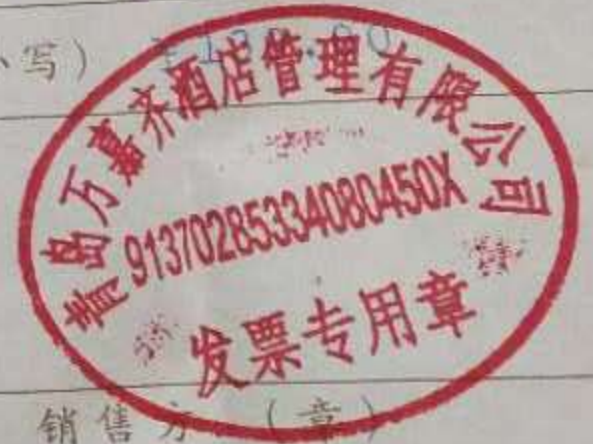 小写)
青岛万嘉齐酒店管理有限公司
91370285334080450X
发票专用章
销售方:(章)